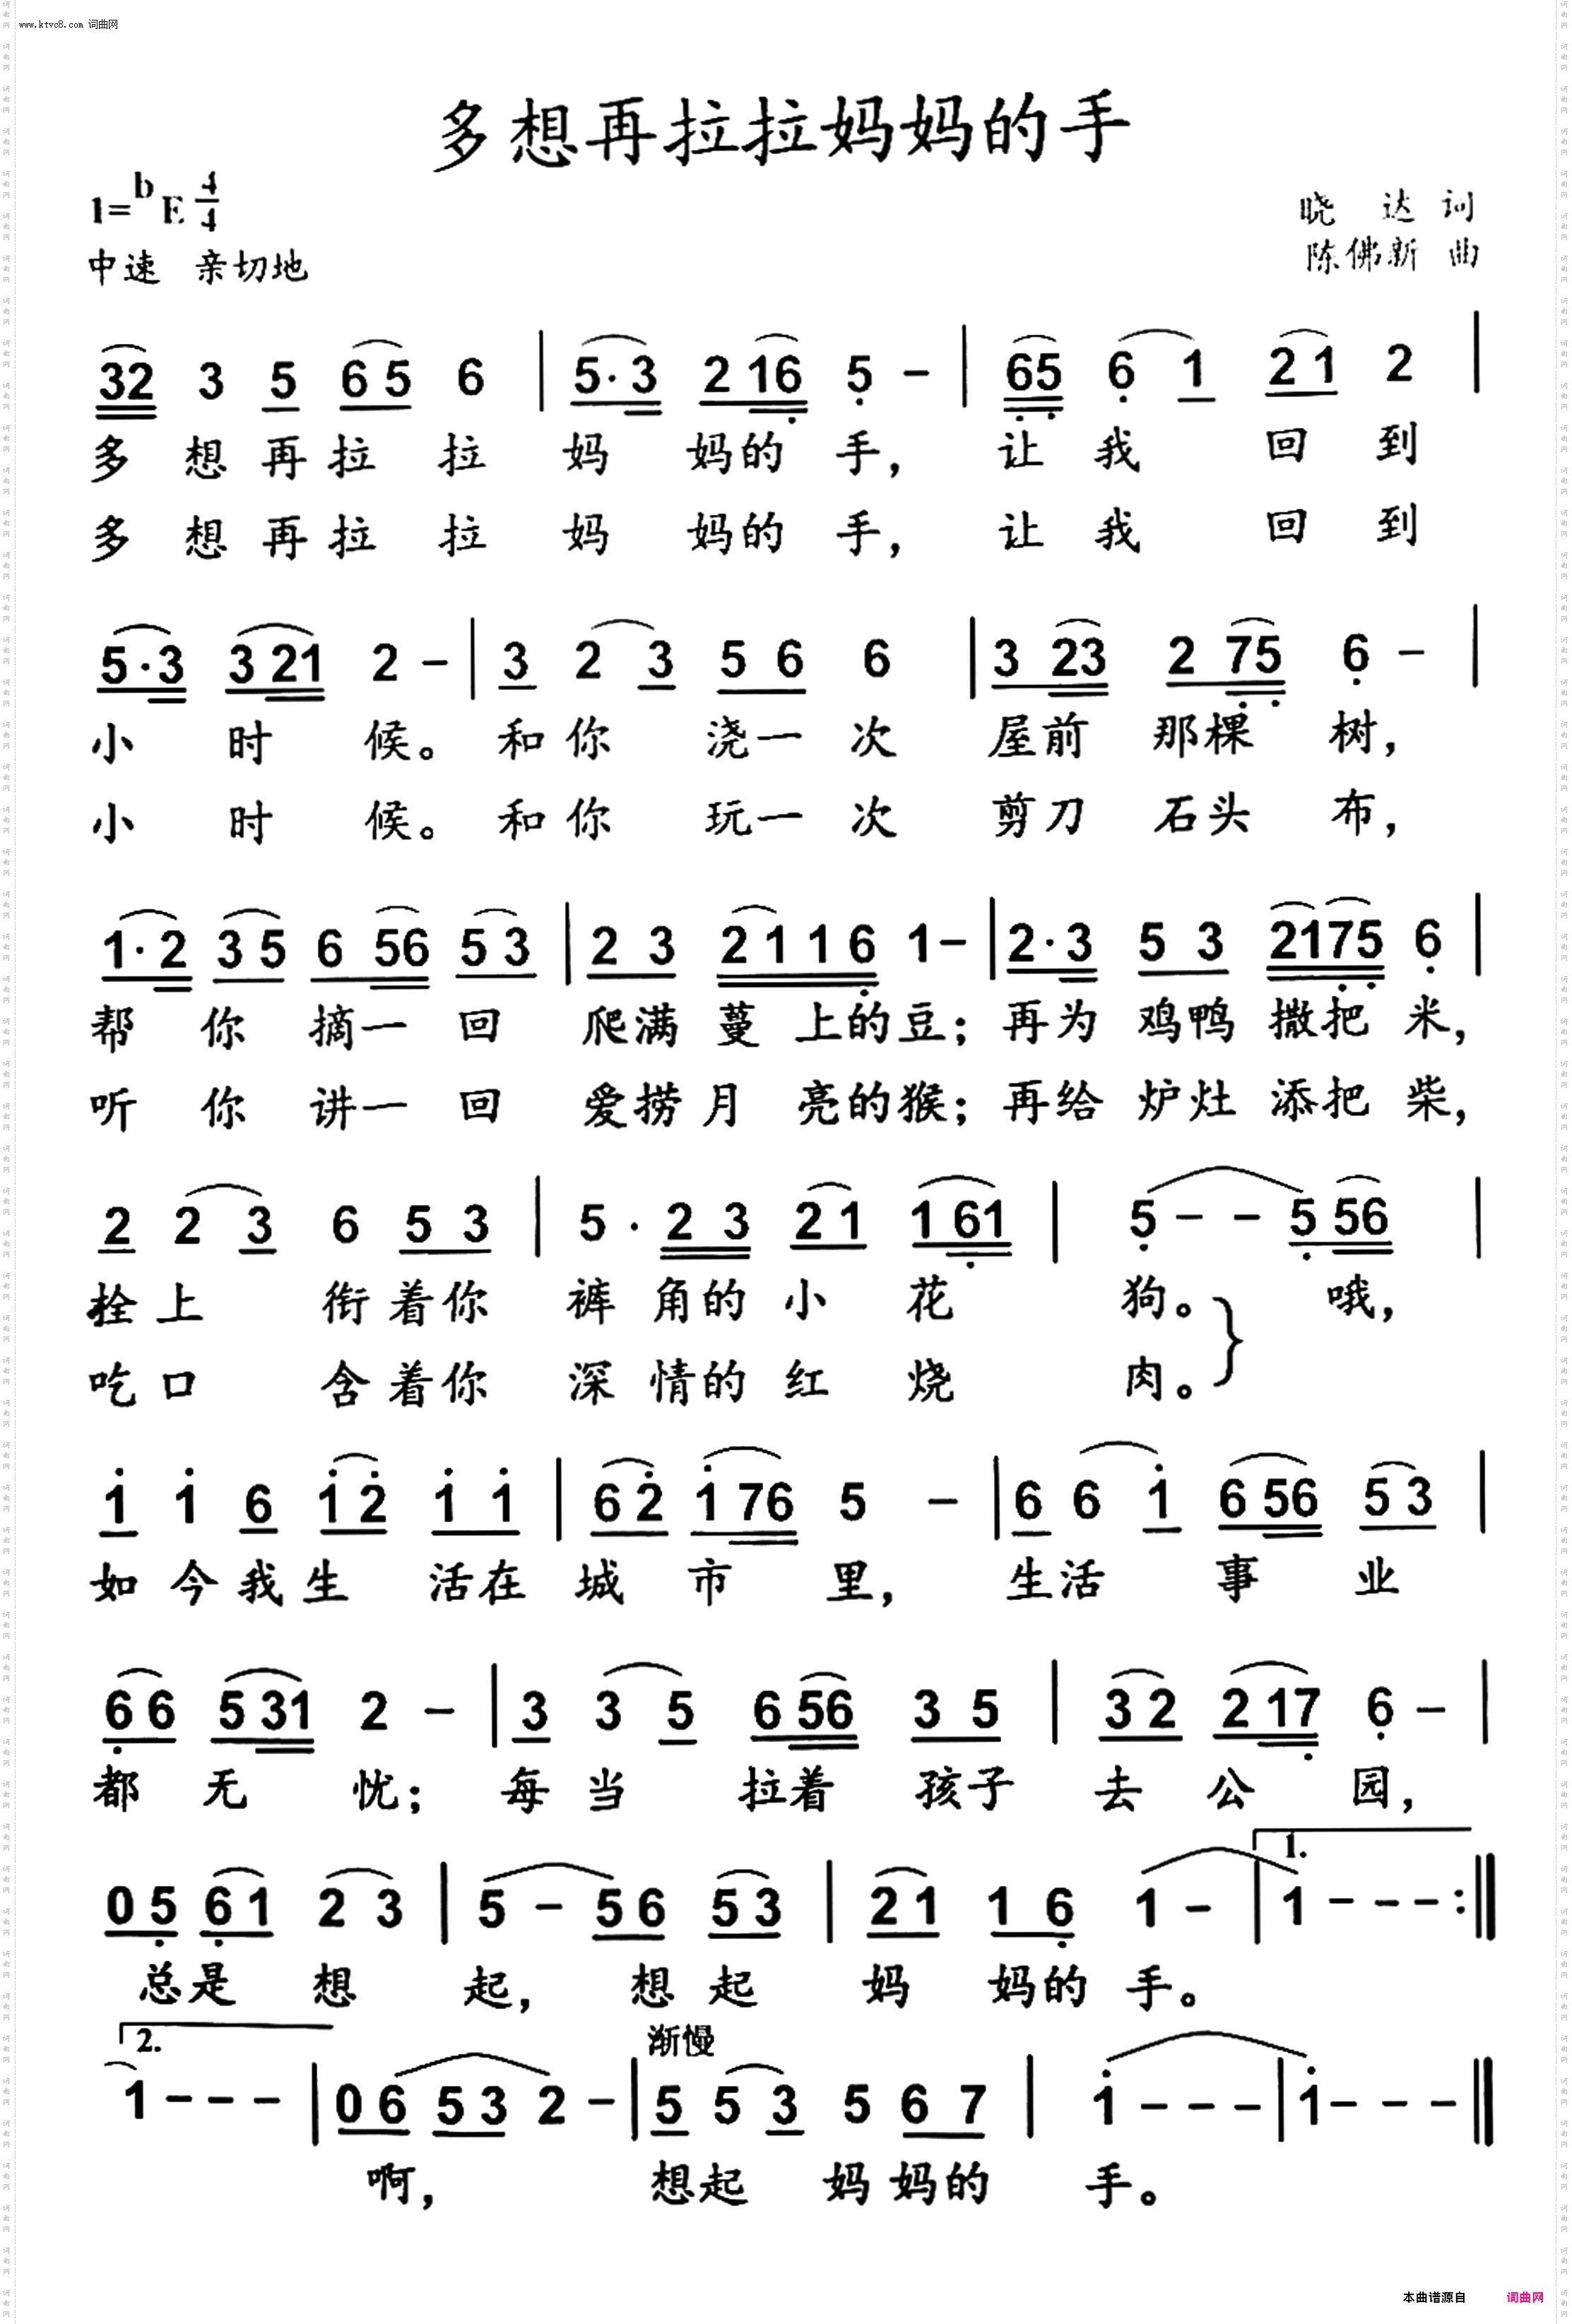 www.ktvc8.com 词曲网
多想再拉拉妈妈的手
1=bE 4/4
晓 达 词
中速 亲切地
陈佛新 曲
32 3 5 65 6 | 5·3 216 5 - | 65 6 1 21 2 |
多 想 再 拉 拉 妈 妈的 手, 让 我 回 到
多 想 再 拉 拉 妈 妈的 手, 让 我 回 到
5·3 321 2 - | 3 2 3 5 6 6 | 3 23 2 75 6 - |
小 时 候。 和 你 浇一 次 屋前 那棵 树,
小 时 候。 和 你 玩一 次 剪刀 石头 布,
1·2 35 6 56 53 | 2 3 2116 1 - | 2·3 5 3 2175 6 |
帮 你 摘一 回 爬满 蔓 上的豆; 再为 鸡鸭 撒把 米,
听 你 讲一 回 爱捞 月 亮的猴; 再给 炉灶 添把 柴,
2 2 3 6 5 3 | 5 · 2 3 21 161 | 5 - - 5 56 |
拴上 衔着你 裤 角的 小 花 狗。 哦,
吃口 含着你 深 情的 红 烧 肉。
1 1 6 12 1 1 | 62 1 76 5 - | 6 6 1 6 56 53 |
如 今 我 生 活在 城 市 里, 生活 事 业
66 531 2 - | 3 3 5 6 56 3 5 | 32 217 6 - |
都 无 忧; 每 当 拉着 孩子 去 公 园,
1.
05 61 2 3 | 5 - 56 53 | 21 1 6 1 - | 1 - - - :||
总是 想 起, 想 起 妈 妈的 手。
2.
渐慢
1 - - - | 06 53 2 - | 5 5 3 5 6 7 | 1 - - - | 1 - - - ||
啊, 想起 妈 妈的 手。
本曲谱源自 词曲网